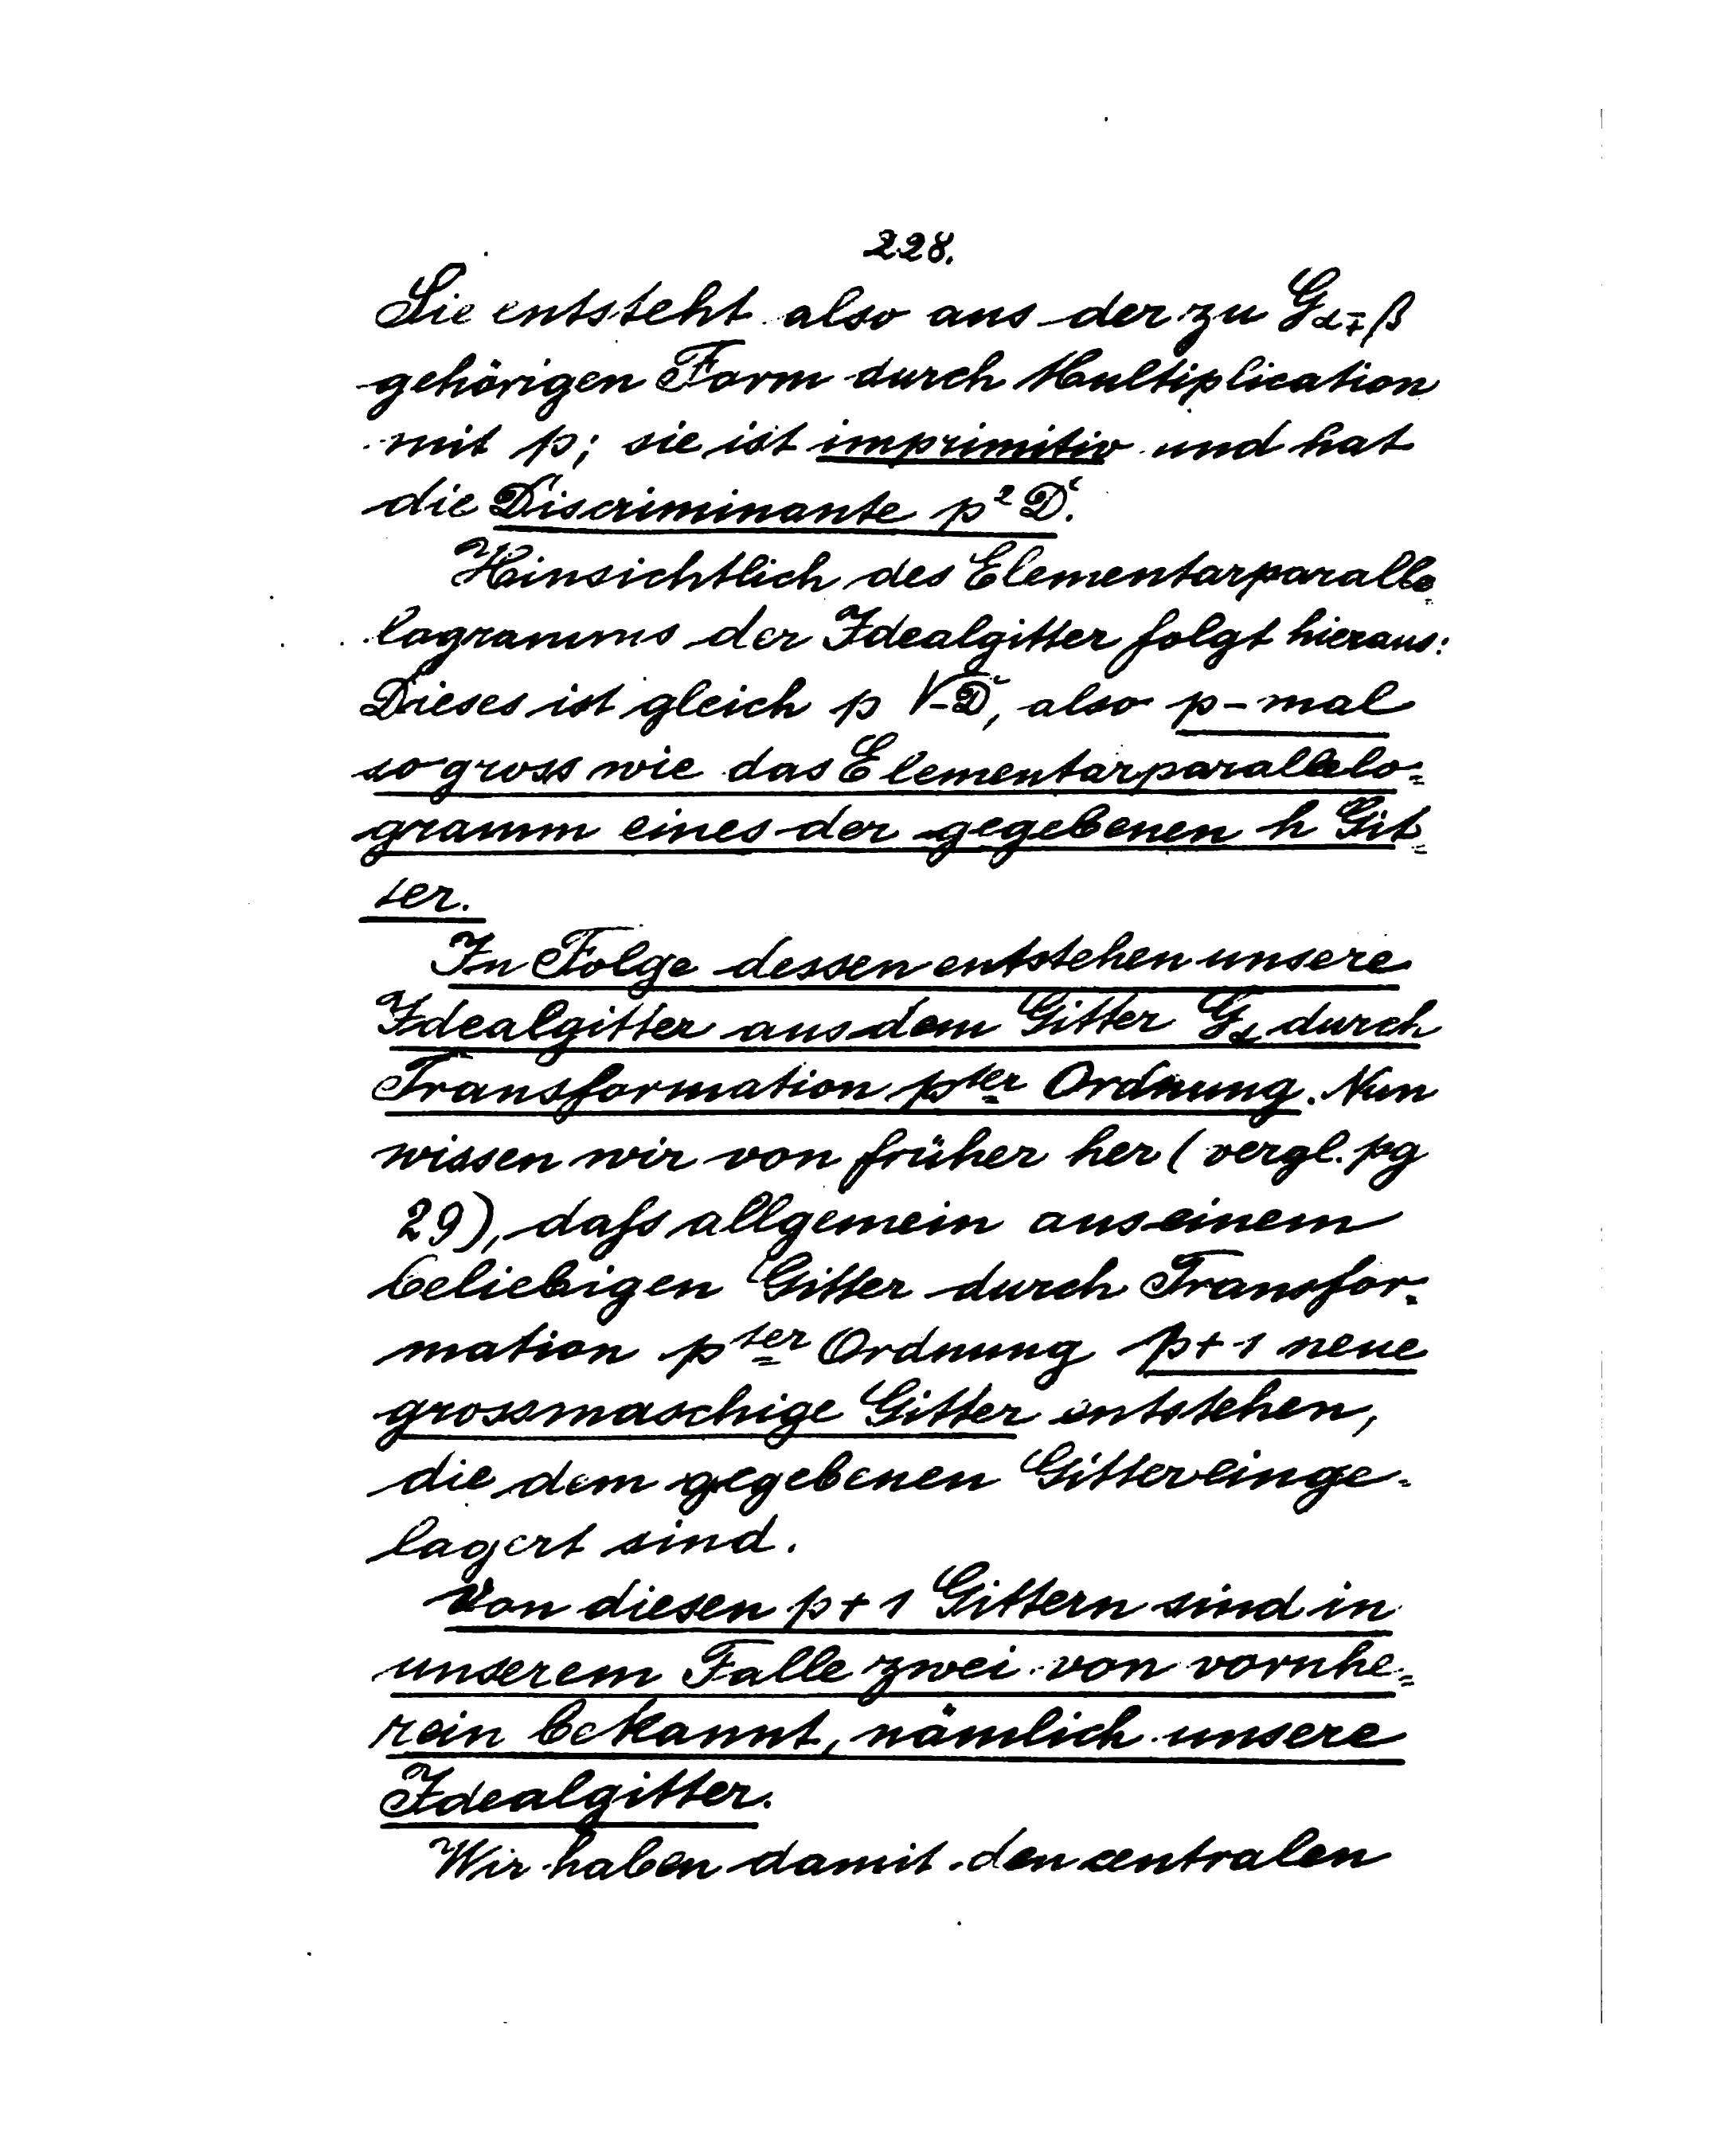 228.
Sie entsteht also aus der zu G_{α∓β}
gehörigen Form durch Multiplication
mit p; sie ist imprimitiv und hat
die Discriminante p² D.
Hinsichtlich des Elementarparalle=
logramms der Idealgitter folgt hieraus:
Dieses ist gleich p √-D, also p-mal
so gross wie das Elementarparallelo=
gramm eines der gegebenen h Git=
ter.
In Folge dessen entstehen unsere
Idealgitter aus dem Gitter G_α durch
Transformation p^{ter} Ordnung. Nun
wissen wir von früher her (vergl. pg
29), daſs allgemein aus einem
beliebigen Gitter durch Transfor=
mation p^{ter} Ordnung p+1 neue
grossmaschige Gitter entstehen,
die dem gegebenen Gitter einge=
lagert sind.
Von diesen p+1 Gittern sind in
unserem Falle zwei von vornhe=
rein bekannt, nämlich unsere
Idealgitter.
Wir haben damit den centralen